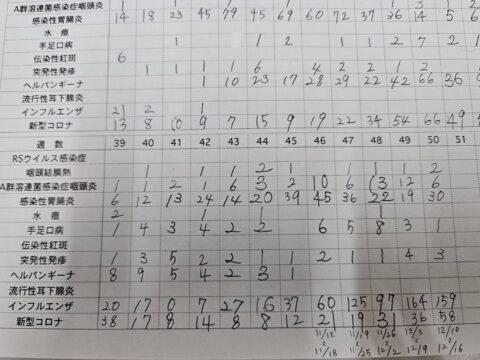 A群溶連菌感染症咽頭炎
感染性胃腸炎 14 18 23 45 79 45 69 60 72 37 36 14 5 6
水 痘
手足口病 1 1 2 1 1 2 7 2
伝染性紅斑 6
突発性発疹 1 1 1 6 4 2 2 1 2
ヘルパンギーナ 1 10 23 17 28 29 22 42 66 36
流行性耳下腺炎
インフルエンザ 21 2 1
新型コロナ 13 8 10 9 7 15 9 19 22 34 54 66 49
週 数 39 40 41 42 43 44 45 46 47 48 49 50 51
RSウイルス感染症
咽頭結膜熱 1 1 2 1 1 1 1 2
A群溶連菌感染症咽頭炎 1 1 2 1 6 3 2 10 6 13 12 6
感染性胃腸炎 6 12 13 24 14 20 39 45 36 22 19 30
水 痘 2 1 1 1
手足口病 1 4 3 4 2 2 6 5 8 3 1
伝染性紅斑
突発性発疹 1 3 5 2 2 1 1 2 1 1 4 3
ヘルパンギーナ 8 9 5 4 2 3 1
流行性耳下腺炎
インフルエンザ 20 17 0 7 27 16 37 60 125 97 164 159
新型コロナ 38 17 8 14 8 8 12 21 19 31 36 58
11/12 11/19 11/26 12/3 12/10
11/18 11/25 12/2 12/9 12/16